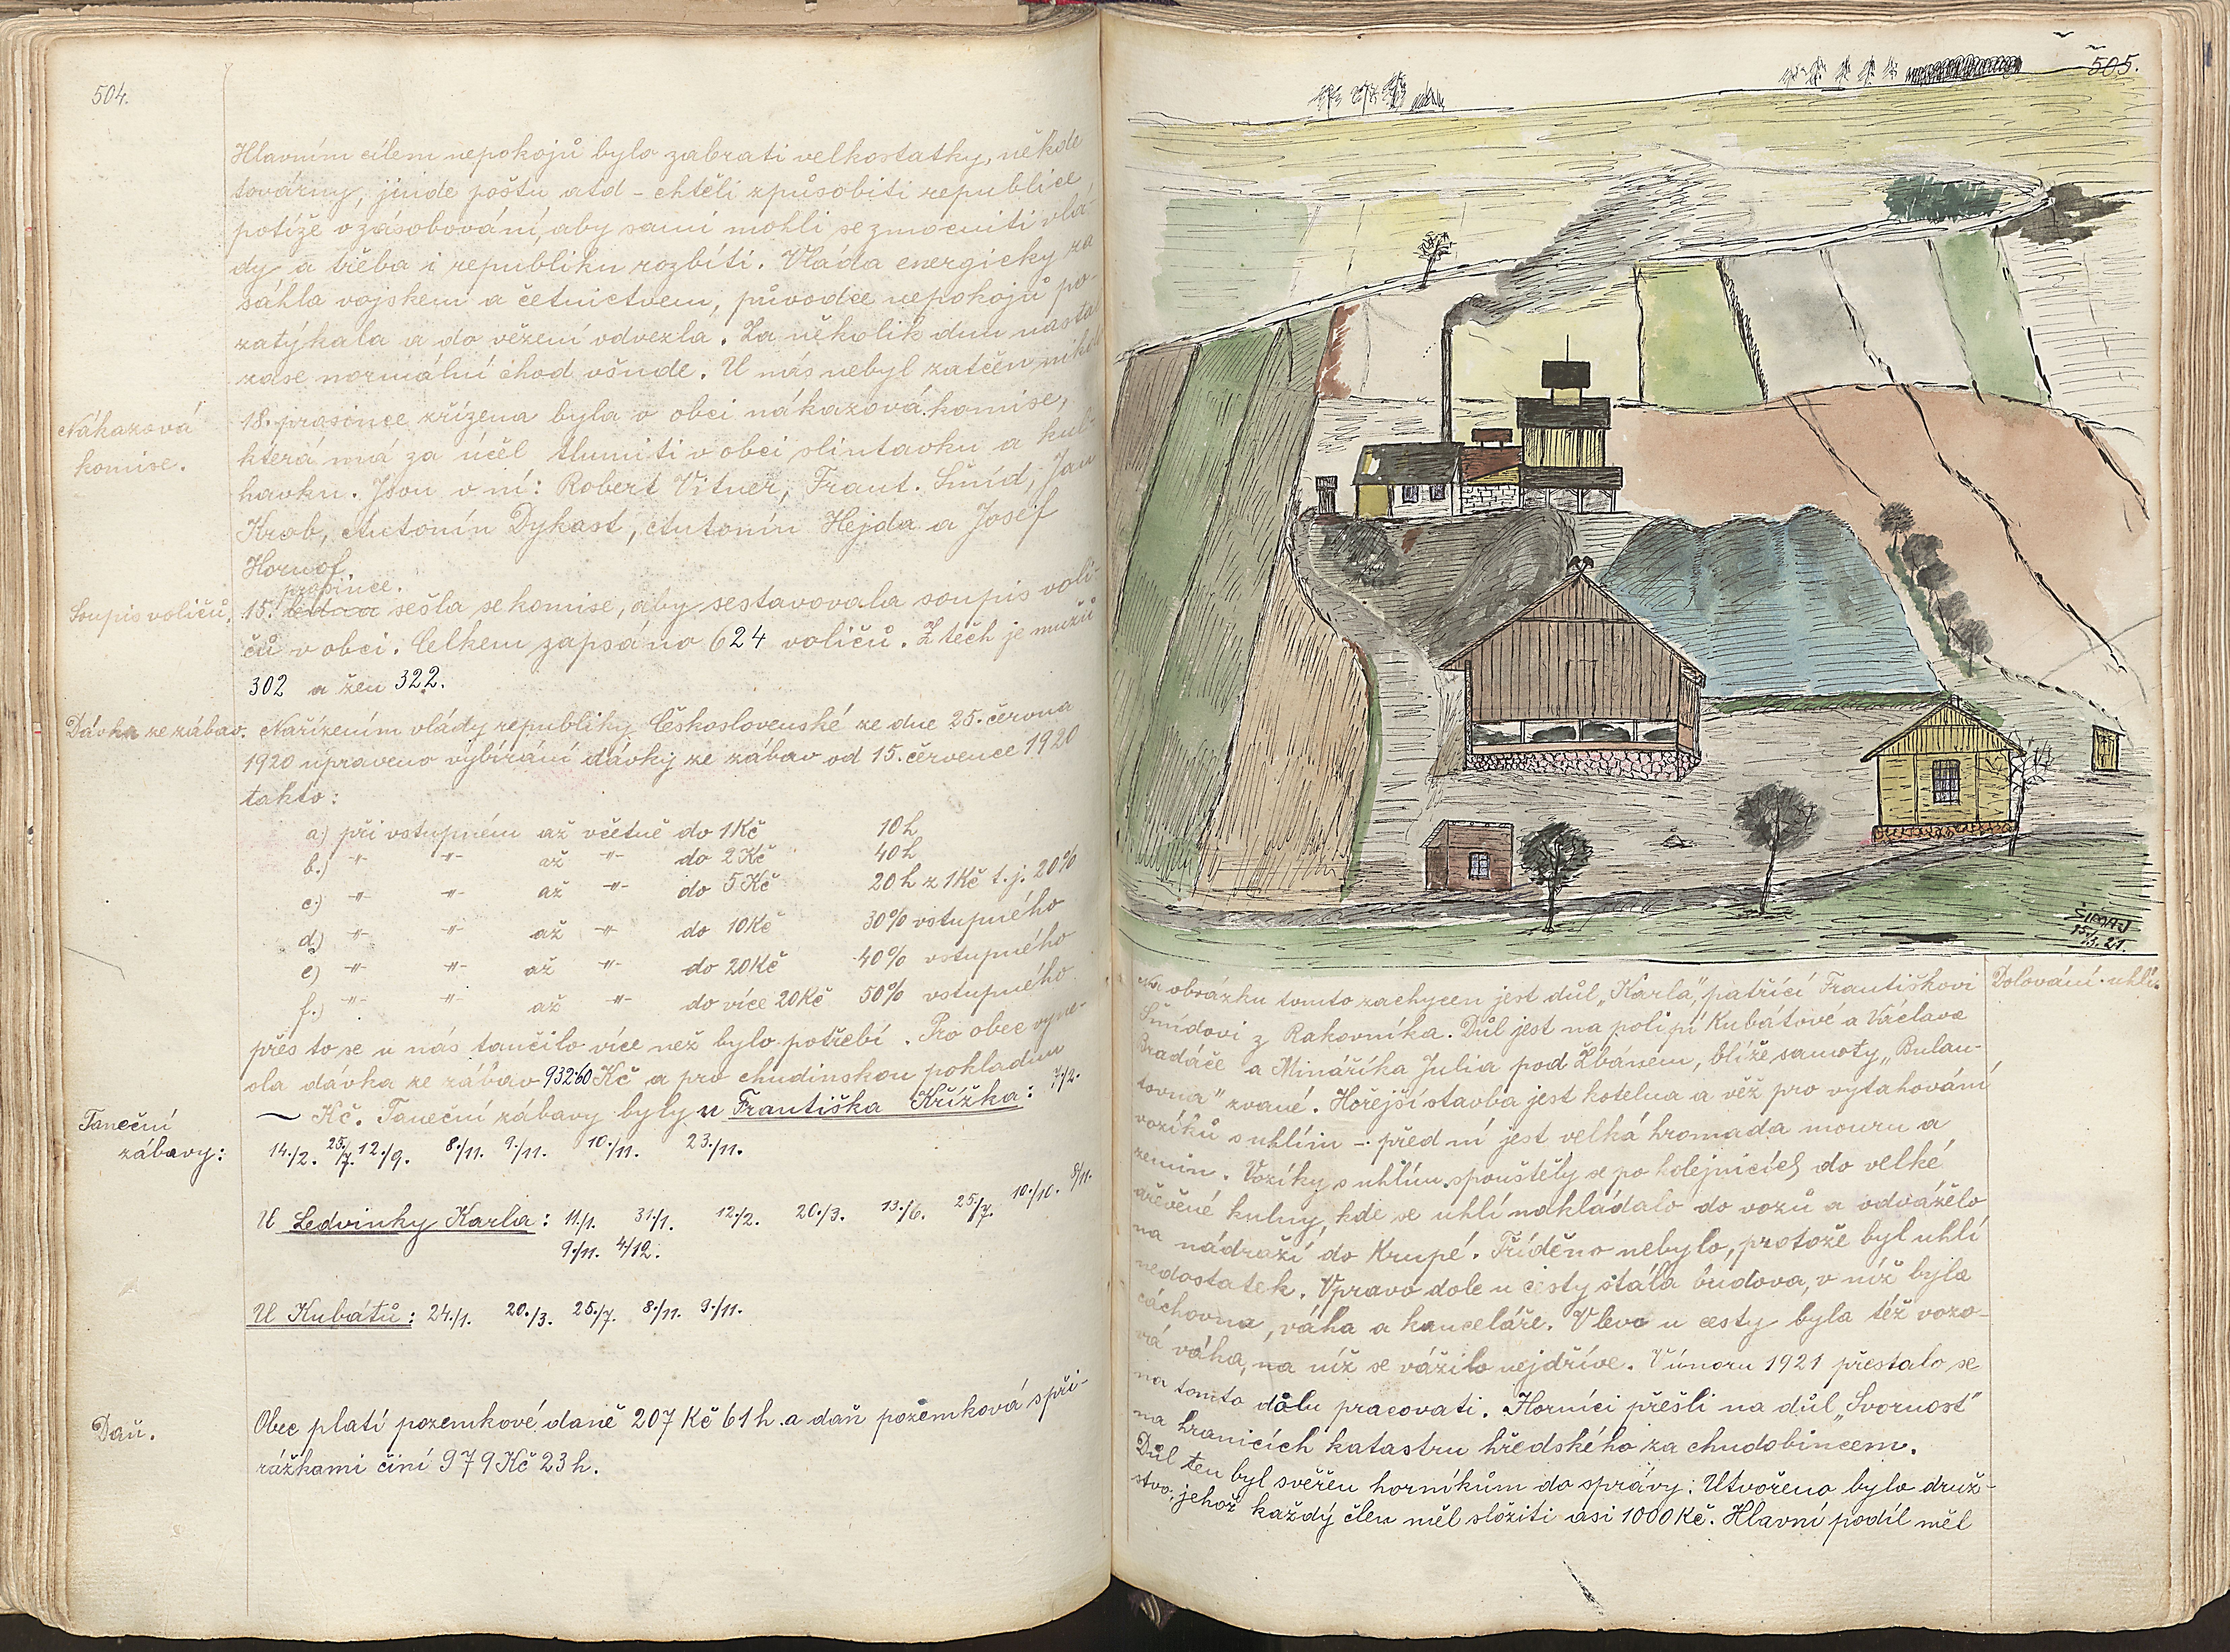 504.
Hlavním cílem nepokojů bylo zabrati velkostatky, někde
továrny, jinde poštu atd - chtěli způsobiti republice
potíže v zásobování, aby sami mohli se zmocniti vlá-
dy a třeba i republiku rozbíti. Vláda energicky za
sáhla vojskem a četnictvem, původce nepokojů po-
zatýkala a do vězení odvezla. Za několik dnů nastal
zase normální chod všude. U nás nebyl zatčen nikdo
Nákazová
komise.
18. prosince zřízena byla v obci nákazová komise,
která má za účel tlumiti v obci slintavku a kul-
havku. Jsou v ní: Robert Vitner, Frant. Šmíd, Jan
Krob, Antonín Dykast, Antonín Hejda a Josef
Hornof.
Soupis voličů.
prosince.
15. ledna sešla se komise, aby sestavovala soupis voli-
čů v obci. Celkem zapsáno 624 voličů. Z těch je mužů
302 a žen 322.
Dávka ze zábav.
Nařízením vlády republiky Československé ze dne 25. června
1920 upraveno vybírání dávky ze zábav od 15. července 1920
takto:
a.) při vstupném až včetně do 1 Kč 10 h
b.) -"- -"- až -"- do 2 Kč 40 h
c.) -"- -"- až -"- do 5 Kč 20 h z 1 Kč t.j. 20%
d.) -"- -"- až -"- do 10 Kč 30% vstupného
e) -"- -"- až -"- do 20 Kč 40% vstupného
f.) -"- -"- až -"- do více 20 Kč 50% vstupného
přes to se u nás tančilo více než bylo potřebí. Pro obec vyne-
sla dávka ze zábav 932·60 Kč a pro chudinskou pokladnu
— Kč. Taneční zábavy byly u Františka Křížka: 7./2.
Taneční
zábavy:
14./2. 25./7. 12./9. 8./11. 9./11. 10./11. 23./11.
U Ledvinky Karla: 11./1. 31./1. 12./2. 20./3. 13./6. 25./7. 10./10. 8/11.
9./11. 4/12.
U Kubátů: 24./1. 20./3. 25./7. 8./11. 9./11.
Daň.
Obec platí pozemkové daně 207 Kč 61 h. a daň pozemková s při-
rážkami činí 979 Kč 23 h.
505.
ŠIMAJ
Na obrázku tomto zachycen jest důl „Karla", patřící Františkovi
Dolování uhlí.
Šmídovi z Rakovníka. Důl jest na poli pí Kubátové a Václava
Bradáče a Mináříka Julia pod Žbánem, blíže samoty „Bulan-
tovna" zvané. Hořejší stavba jest kotelna a věž pro vytahování
vozíků s uhlím - před ní jest velká hromada mouru a
zemin. Vozíky s uhlím spouštěly se po kolejnicích do velké
dřevěné kulny, kde se uhlí nakládalo do vozů a odváželo
na nádraží do Krupé. Tříděno nebylo, protože byl uhlí
nedostatek. Vpravo dole u cesty stála budova, v níž byla
cáchovna, váha a kanceláře. Vlevo u cesty byla též vozo-
vá váha, na níž se vážilo nejdříve. V únoru 1921 přestalo se
na tomto dolu pracovati. Horníci přešli na důl „Svornost"
na hranicích katastru hředského za chudobincem.
Důl ten byl svěřen horníkům do správy: Utvořeno bylo druž-
stvo, jehož každý člen měl složiti asi 1000 Kč. Hlavní podíl měl